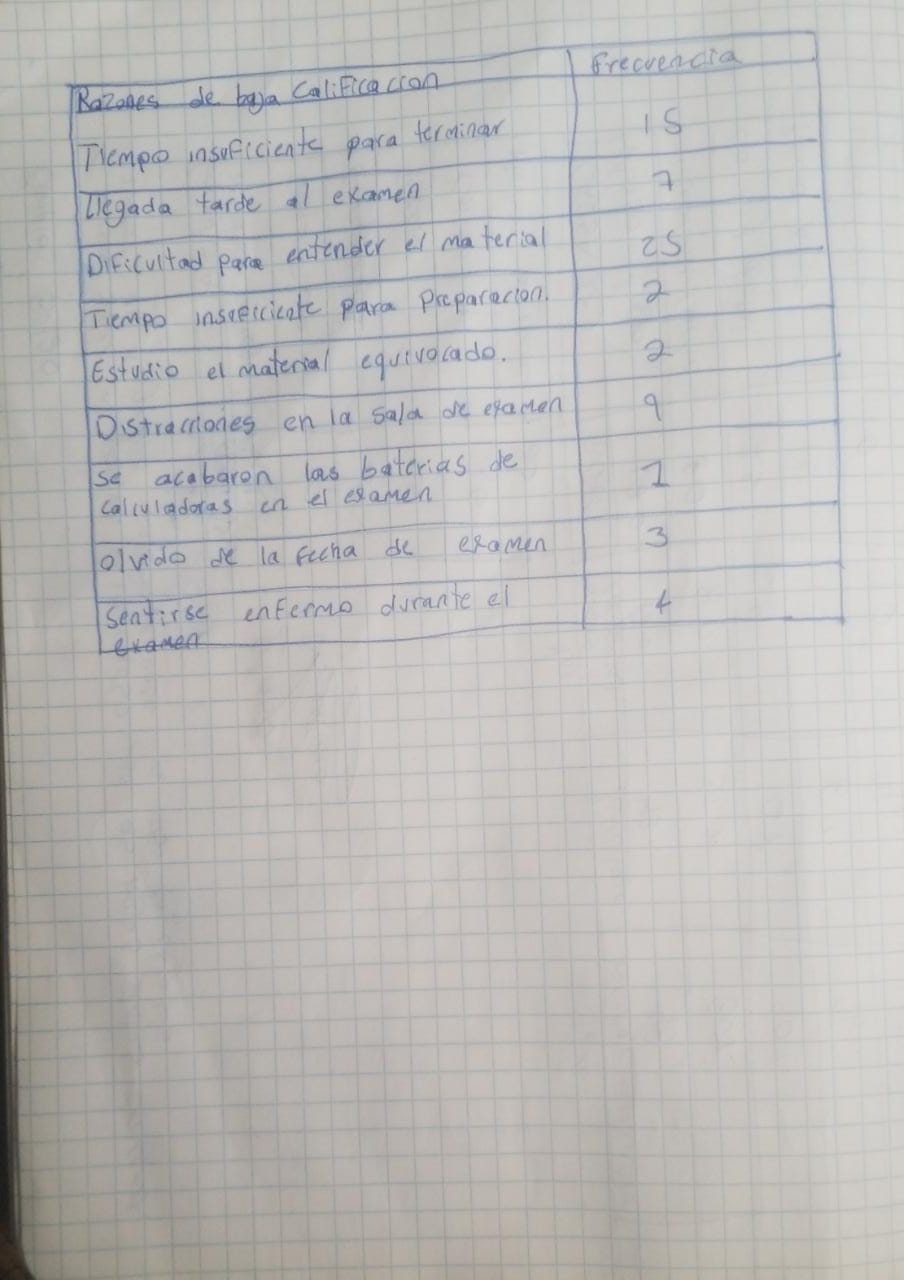 Razones de baja Calificacion
frecuencia
Tiempo insuficiente para terminar
15
Llegada tarde al examen
7
Dificultad para entender el material
25
Tiempo insuficicate para Preparacion.
2
Estudio el material equivocado.
2
Distracciones en la Sala de examen
9
se acabaron las baterias de
calculadoras en el examen
1
olvido de la fecha de examen
3
Sentirse enfermo durante el
examen
4